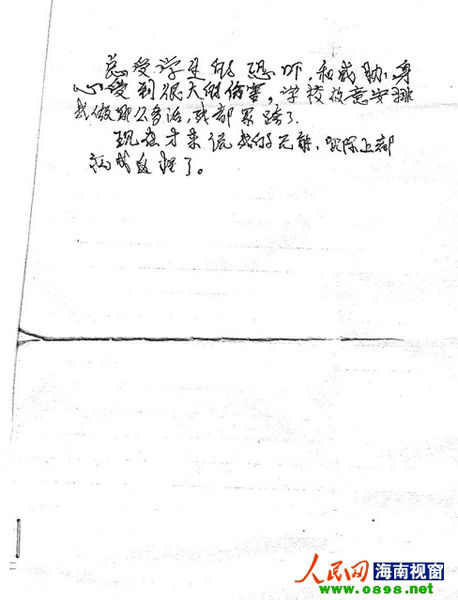 总受学生的恐吓,和威胁,身
心受到很大的伤害,学校故意安排
我做那么多活,我都累跨了.
现在才来说我的无能,实际上都
成这样了。
人民网 海南视窗
www.0898.net